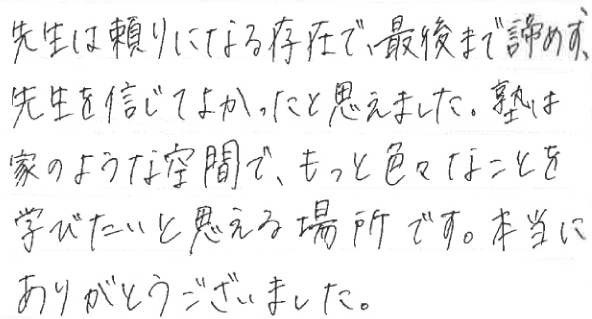 先生は頼りになる存在で、最後まで諦めず、
先生を信じてよかったと思えました。塾は
家のような空間で、もっと色々なことを
学びたいと思える場所です。本当に
ありがとうございました。